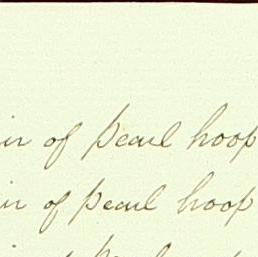 ir of pearl hoop
ir of pearl hoop